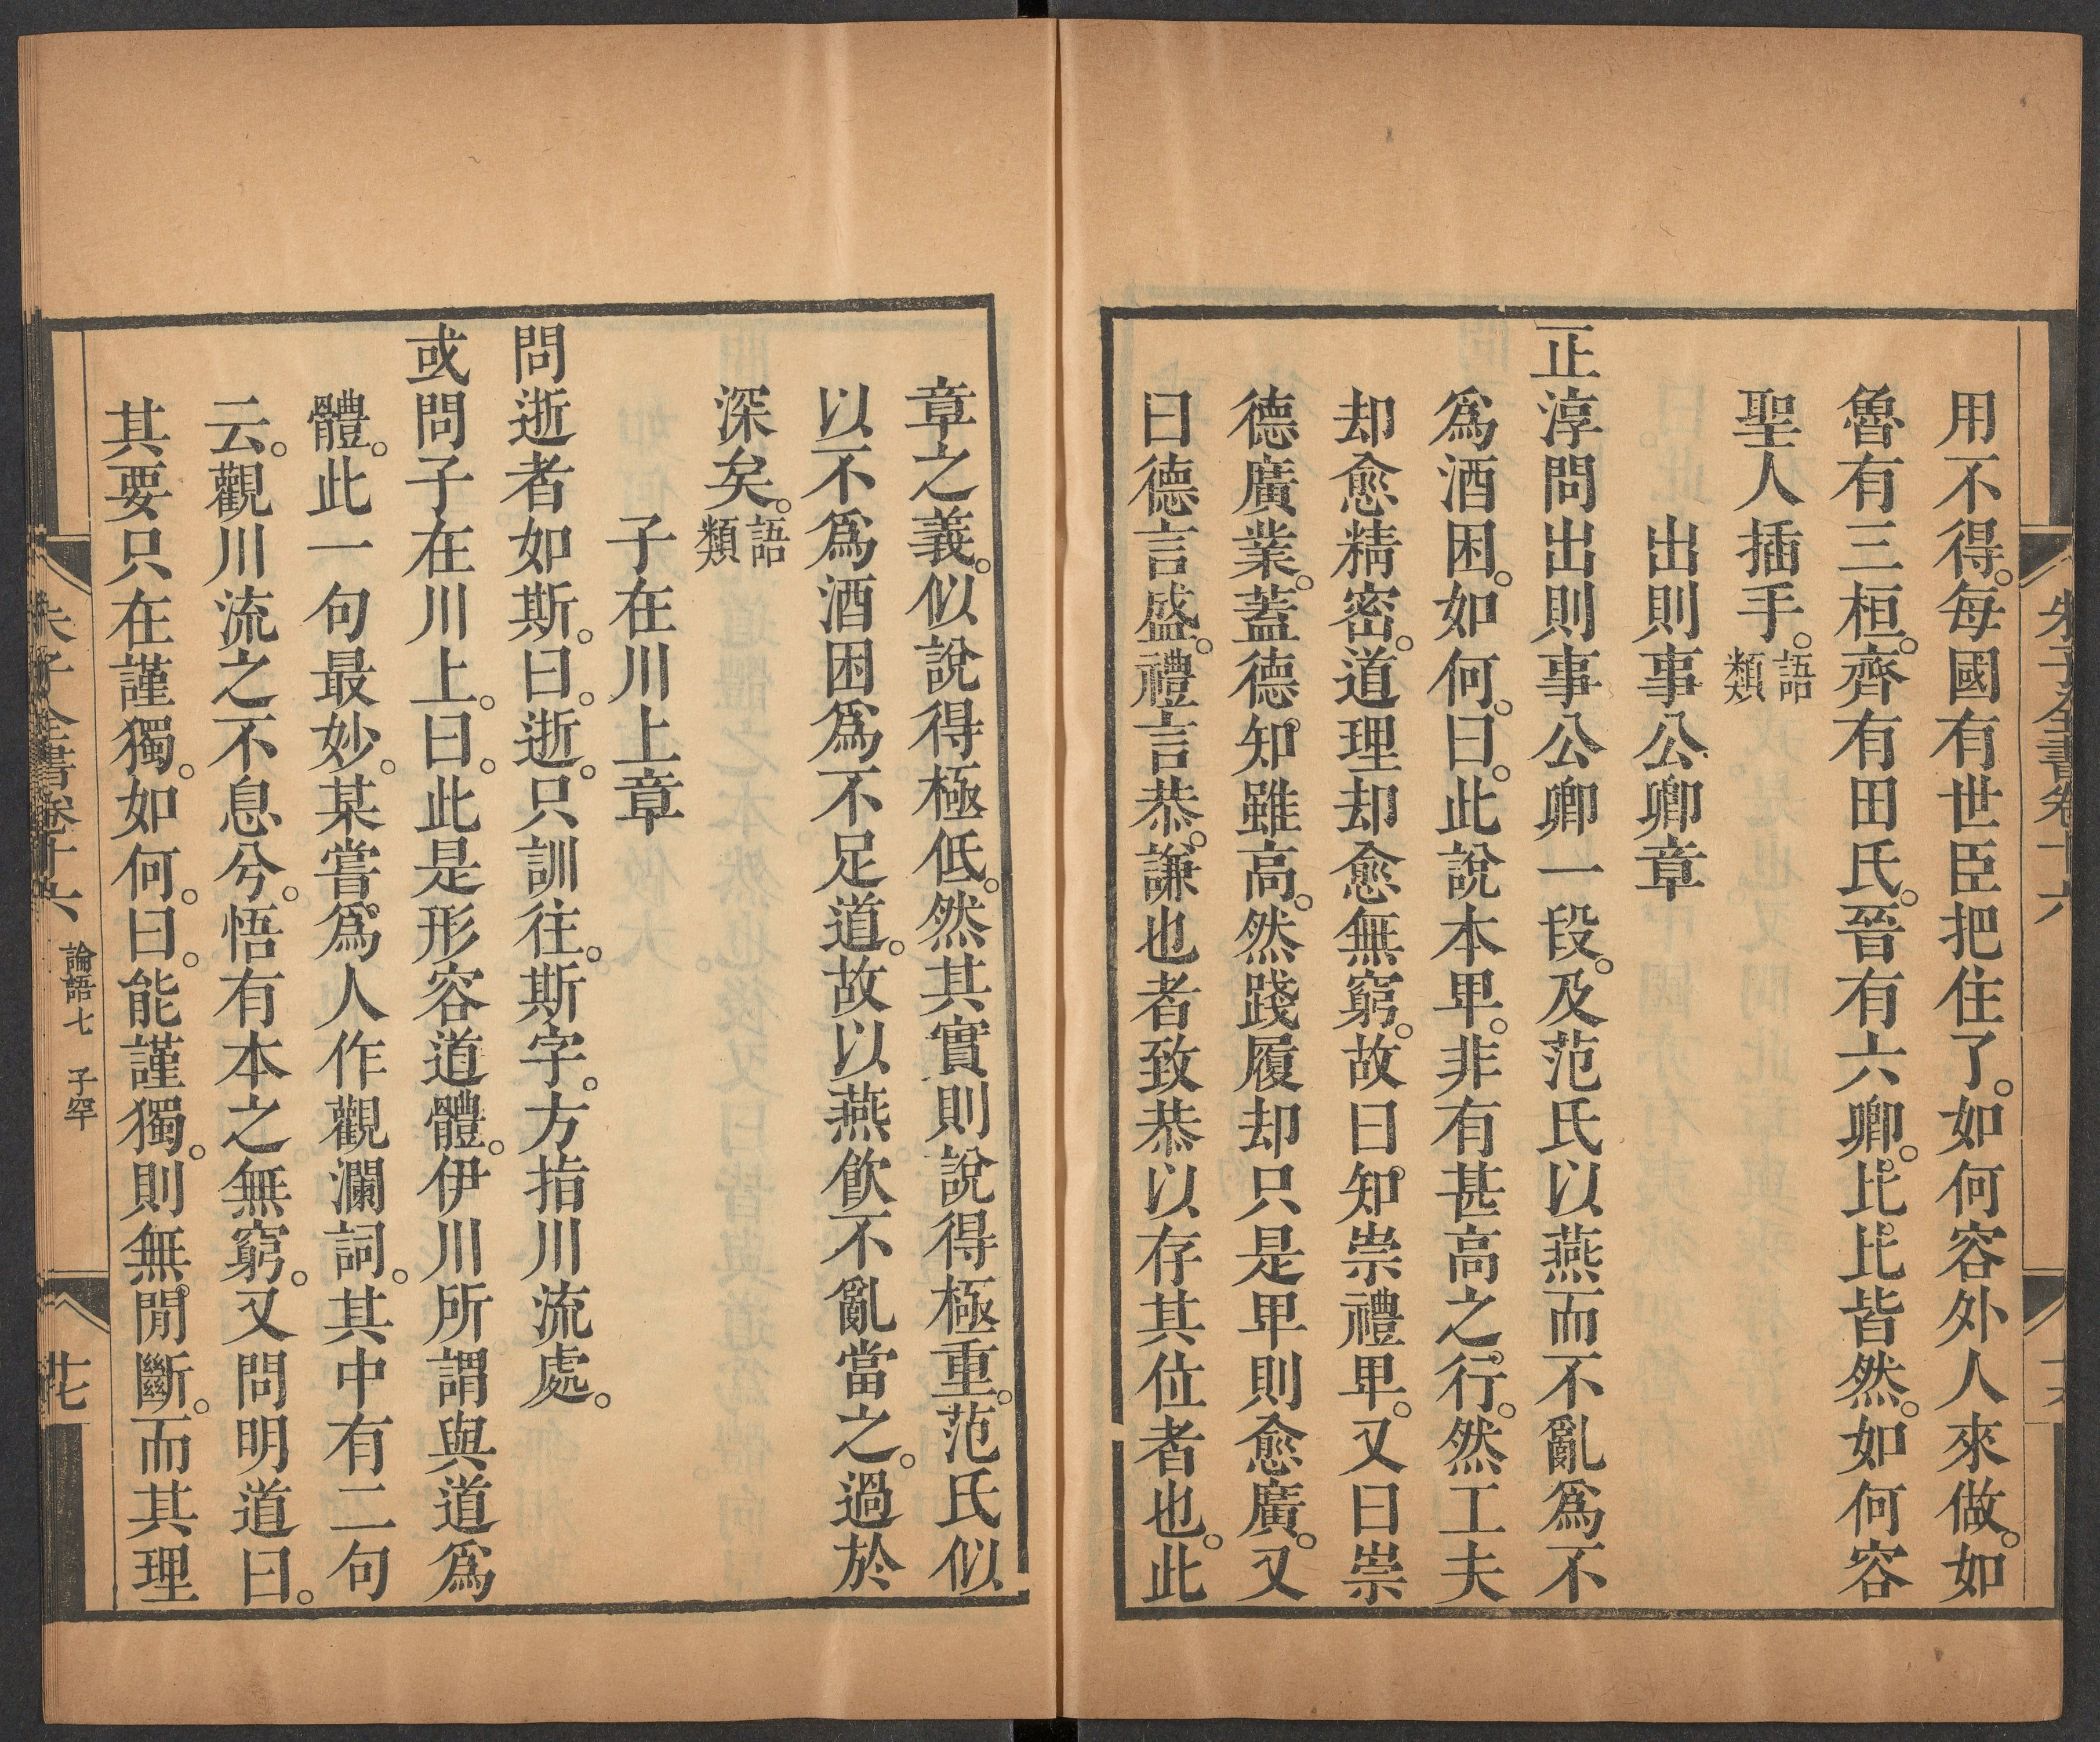 朱子全書卷十六
用不得。每國有世臣把住了。如何容外人來做。如
魯有三桓。齊有田氏。晉有六卿。比比皆然。如何容
聖人插手。語類
出則事公卿章
正淳問出則事公卿一段。及范氏以燕而不亂為不
為酒困。如何。曰。此說本卑。非有甚高之行。然工夫
却愈精密。道理却愈無窮。故曰知崇禮卑。又曰崇
德廣業。蓋德知雖高。然踐履却只是卑則愈廣。又
曰德言盛。禮言恭。謙也者致恭以存其位者也。此
章之義。似說得極低。然其實則說得極重。范氏似
以不爲酒困爲不足道。故以燕飲不亂當之。過於
深矣。語類
子在川上章
問逝者如斯。曰。逝。只訓往。斯字。方指川流處。
或問子在川上。曰。此是形容道體。伊川所謂與道爲
體。此一句最妙。某嘗爲人作觀瀾詞。其中有二句
云。觀川流之不息兮。悟有本之無窮。又問明道曰。
其要只在謹獨。如何。曰。能謹獨。則無間斷。而其理
朱子全書卷十六 論語七 子罕 花